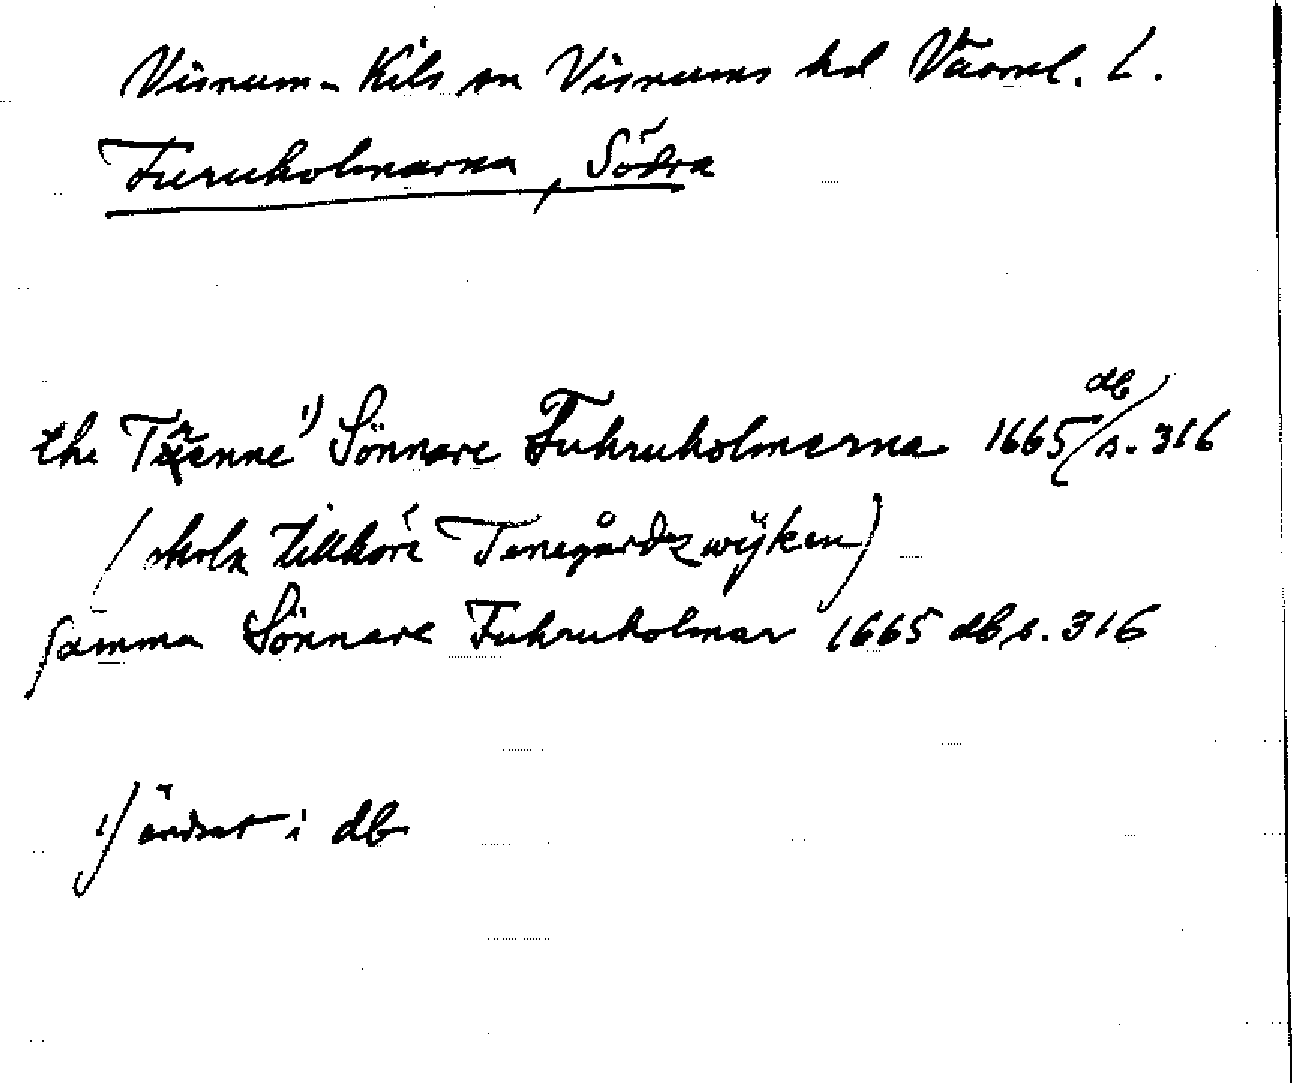 Visnum-Kils sn Visnums hd Värml. L.
Furuholmarna, Södra
the Tvenne 1) Sönnare Fuhruholmerna 1665 db s. 316
(skola tillhöra Tenegårdzwijken)
samma Sönnare Fuhruholmar 1665 db s. 316
1) ändrat i db